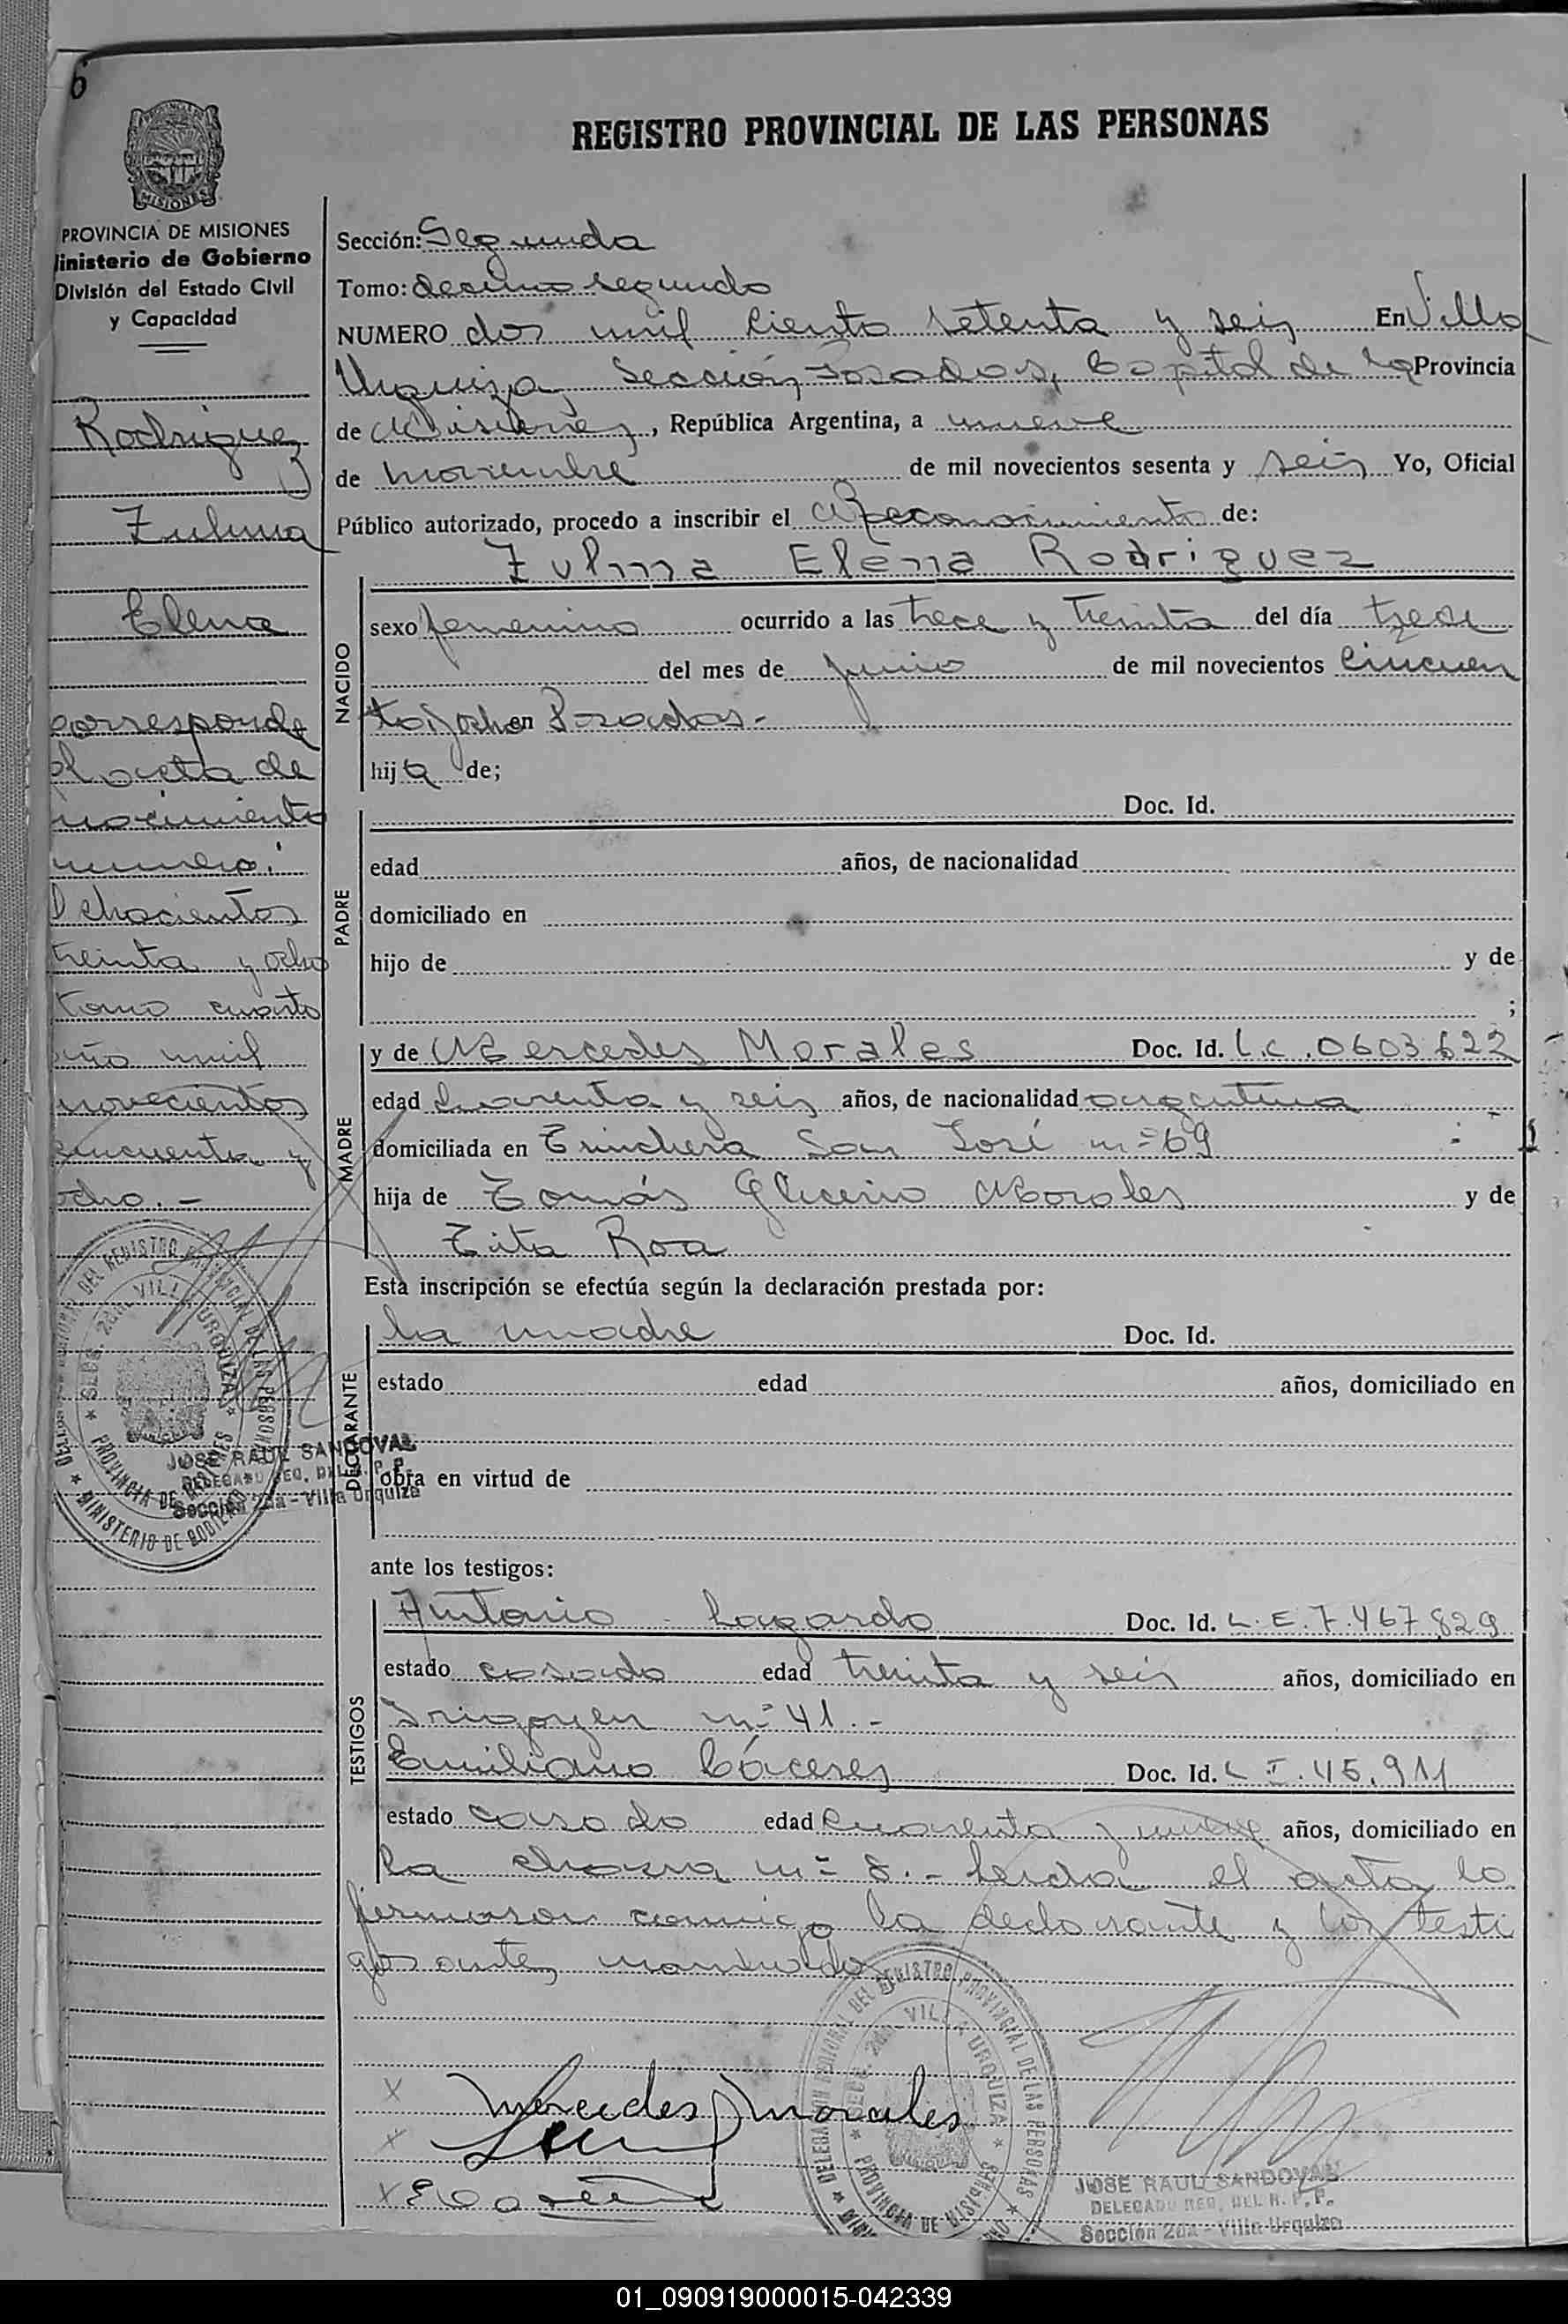 6
REGISTRO PROVINCIAL DE LAS PERSONAS
MISIONES
PROVINCIA DE MISIONES
Ministerio de Gobierno
División del Estado Civil
y Capacidad
Rodriguez
Zulma
Elena
corresponde
al acta de
nacimiento
numero:
Ochocientos
treinta y ocho
tomo cuarto
año mil
novecientos
cincuenta y
ocho.-
JOSE RAUL SANDOVAL
DELEGADO REG. DEL R. P. P.
Sección 2da - Villa Urquiza
Sección: Segunda
Tomo: decimo segundo
NUMERO dos mil ciento setenta y seis En Villa
Urquiza, Sección Posadas, Capital de la Provincia
de Misiones, República Argentina, a nueve
de noviembre de mil novecientos sesenta y seis Yo, Oficial
Público autorizado, procedo a inscribir el Reconocimiento de:
NACIDO
Zulma Elena Rodriguez
sexo femenino ocurrido a las trece y treinta del día trece
del mes de junio de mil novecientos cincuen
ta y ocho en Posadas.-
hija de;
PADRE
Doc. Id.
edad años, de nacionalidad
domiciliado en
hijo de y de
;
MADRE
y de Mercedes Morales Doc. Id. L.C. 0603622
edad cuarenta y seis años, de nacionalidad argentina
domiciliada en Trinchera San José nº 69
hija de Tomás Glicerio Morales y de
Tita Roa
Esta inscripción se efectúa según la declaración prestada por:
DECLARANTE
La madre Doc. Id.
estado edad años, domiciliado en
obra en virtud de
ante los testigos:
TESTIGOS
Antonio Lagardo Doc. Id. L.E. 7.467.829
estado casado edad treinta y seis años, domiciliado en
Irigoyen nº 41.-
Emiliano Cáceres Doc. Id. L.I. 45.911
estado casado edad cuarenta y nueve años, domiciliado en
La chacra nº 8.- Leida el acta lo
firmaron conmigo la declarante y los testi
gos ante
Mercedes Morales
DELEGACION REGIONAL DEL REGISTRO PROVINCIAL DE LAS PERSONAS
SECC. 2da. VILLA URQUIZA
PROVINCIA DE MISIONES
JOSE RAUL SANDOVAL
DELEGADO REG. DEL R. P. P.
Sección 2da - Villa Urquiza
01_090919000015-042339